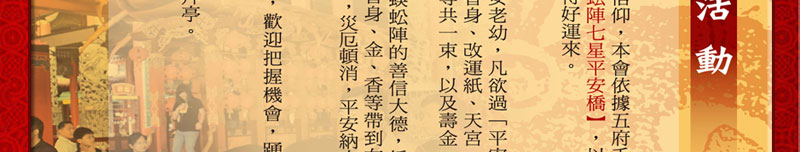 活動
信仰，本會依據五府千
蚣陣七星平安橋】，以
得好運來。
安老幼，凡欲過「平安
替身、改運紙、天宮
等共一束，以及壽金
蜈蚣陣的善信大德，
，災厄頓消，平安納
替身、金、香等帶到
，歡迎把握機會，踴
井亭。